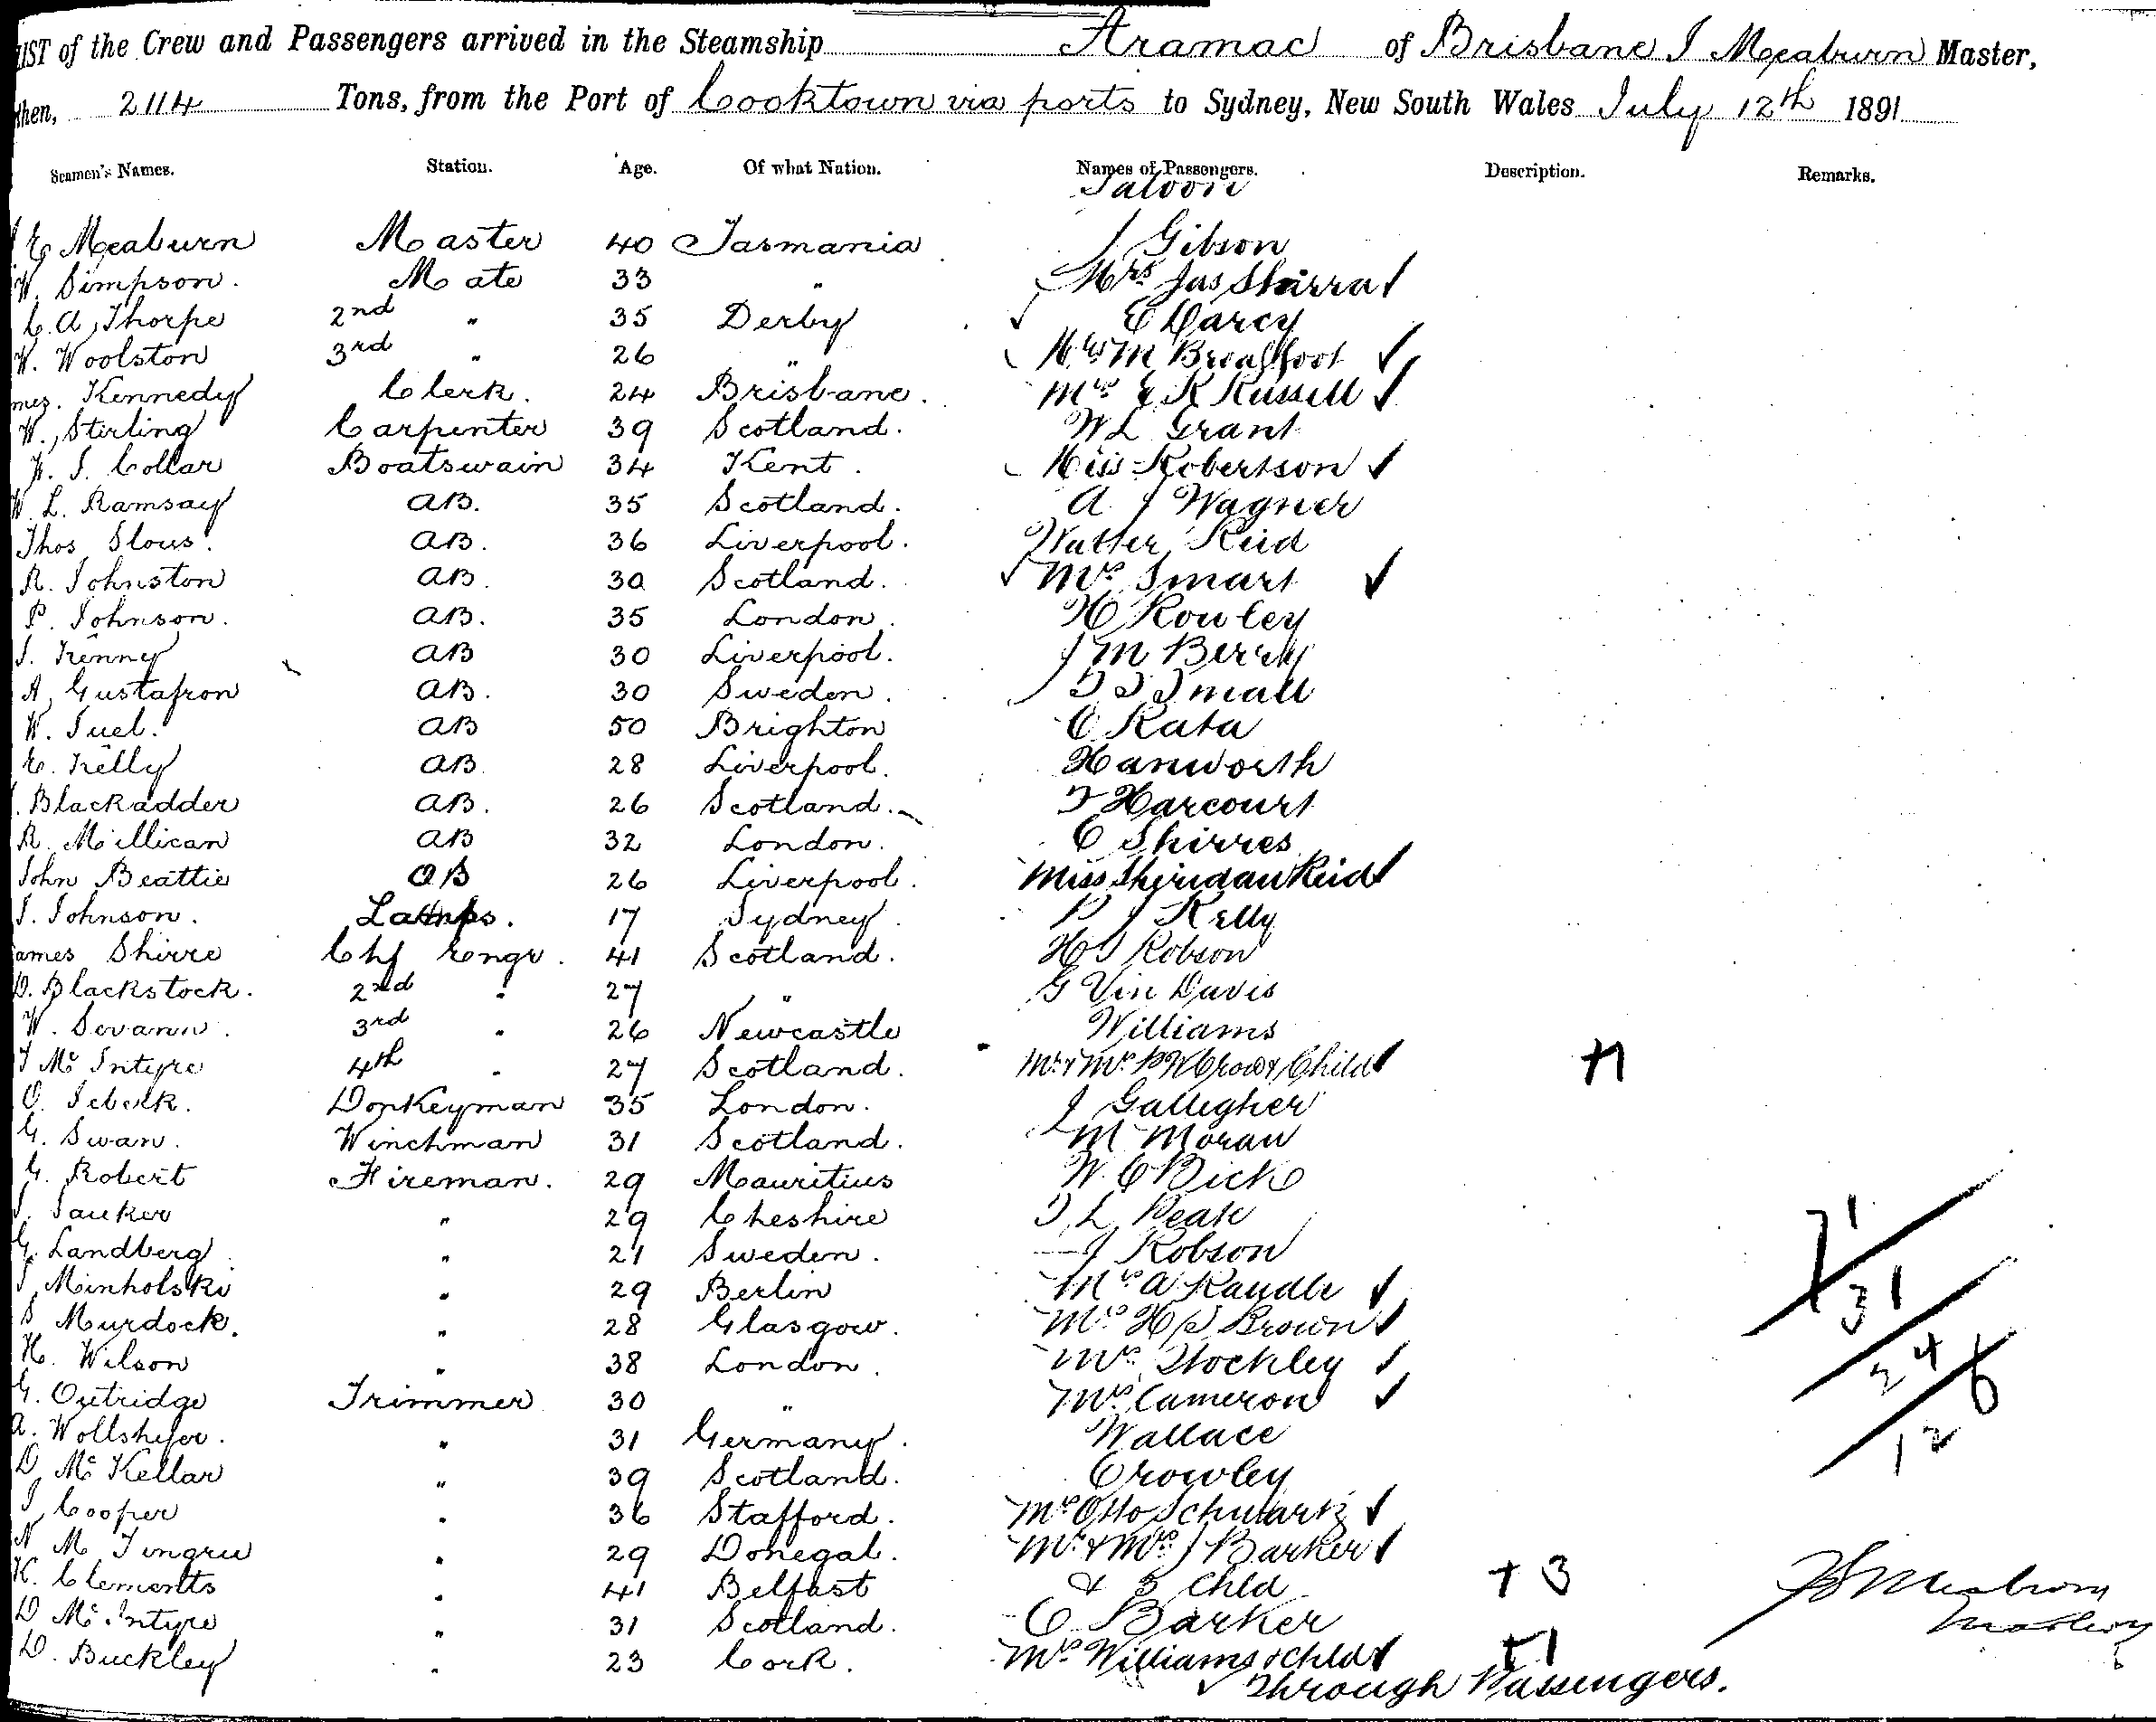 LIST of the Crew and Passengers arrived in the Steamship Aramac of Brisbane J Meaburn Master,
then, 2114 Tons, from the Port of Cooktown via ports to Sydney, New South Wales July 12th 1891
Seamen's Names. Station. Age. Of what Nation. Names of Passengers. Description. Remarks.
Saloon
E Meaburn Master 40 Tasmania J Gibson
W. Simpson. Mate 33 " Mrs Jas Shirra ✓
C. A. Thorpe 2nd " 35 Derby ✓ E Darcy
W. Woolston 3rd " 26 " M Broadfoot ✓
Kennedy Clerk. 24 Brisbane. Mrs E K Russell ✓
W. Stirling Carpenter 39 Scotland. W L Grant
J. Collar Boatswain 34 Kent. Miss Robertson ✓
W. L. Ramsay AB. 35 Scotland. A J Wagner
Thos Slous. AB. 36 Liverpool. Walter Reid
R. Johnston AB. 30 Scotland. ✓ Mrs Smart ✓
P. Johnson. AB. 35 London. H Rowley
J. Kenny AB 30 Liverpool. J M Berry
A. Gustafson AB. 30 Sweden. Small
W. Juel. AB 50 Brighton C Kata
E. Kelly AB 28 Liverpool. Hanworth
Blackadder AB. 26 Scotland. F Harcourt
R. Millican AB 32 London. C Shirres
John Beattie OB 26 Liverpool. Miss Sheridan Reid ✓
J. Johnson. Lamps. 17 Sydney P J Kelly
James Shirre Chf Engr. 41 Scotland. H J Robson
D. Blackstock. 2nd " 27 " G Vin Davis
W. 3rd " 26 Newcastle Williams
J McIntyre 4th " 27 Scotland. Mr & Mrs P W Crow & Child ✓ +1
O. Donkeyman 35 London. J Gallegher
G. Swan. Winchman 31 Scotland. M Moran
G. Robert Fireman. 29 Mauritius W. C Bick
J. " 29 Cheshire L Peak
G. Landberg " 21 Sweden. J Robson
J. Minholski " 29 Berlin Mrs A Randle ✓
S Murdock. " 28 Glasgow. Mrs H S Brown ✓
H. Wilson " 38 London. Mrs Stockley ✓
G. Outridge Trimmer 30 " Mrs Cameron ✓
A. Wollshefer. " 31 Germany. Wallace
D McKellar " 39 Scotland. Crowley
J. Cooper " 36 Stafford. Mrs Otto Schwartz ✓
N M " 29 Donegal. Mr & Mrs J Barker ✓
K. Clements " 41 Belfast & 3 Chld + 3
D McIntyre " 31 Scotland. C Barker
D. Buckley " 23 Cork. Mrs Williams & Chld ✓ +1
✓ Through Passengers.
71
31
24 6
12
Meaburn
Master